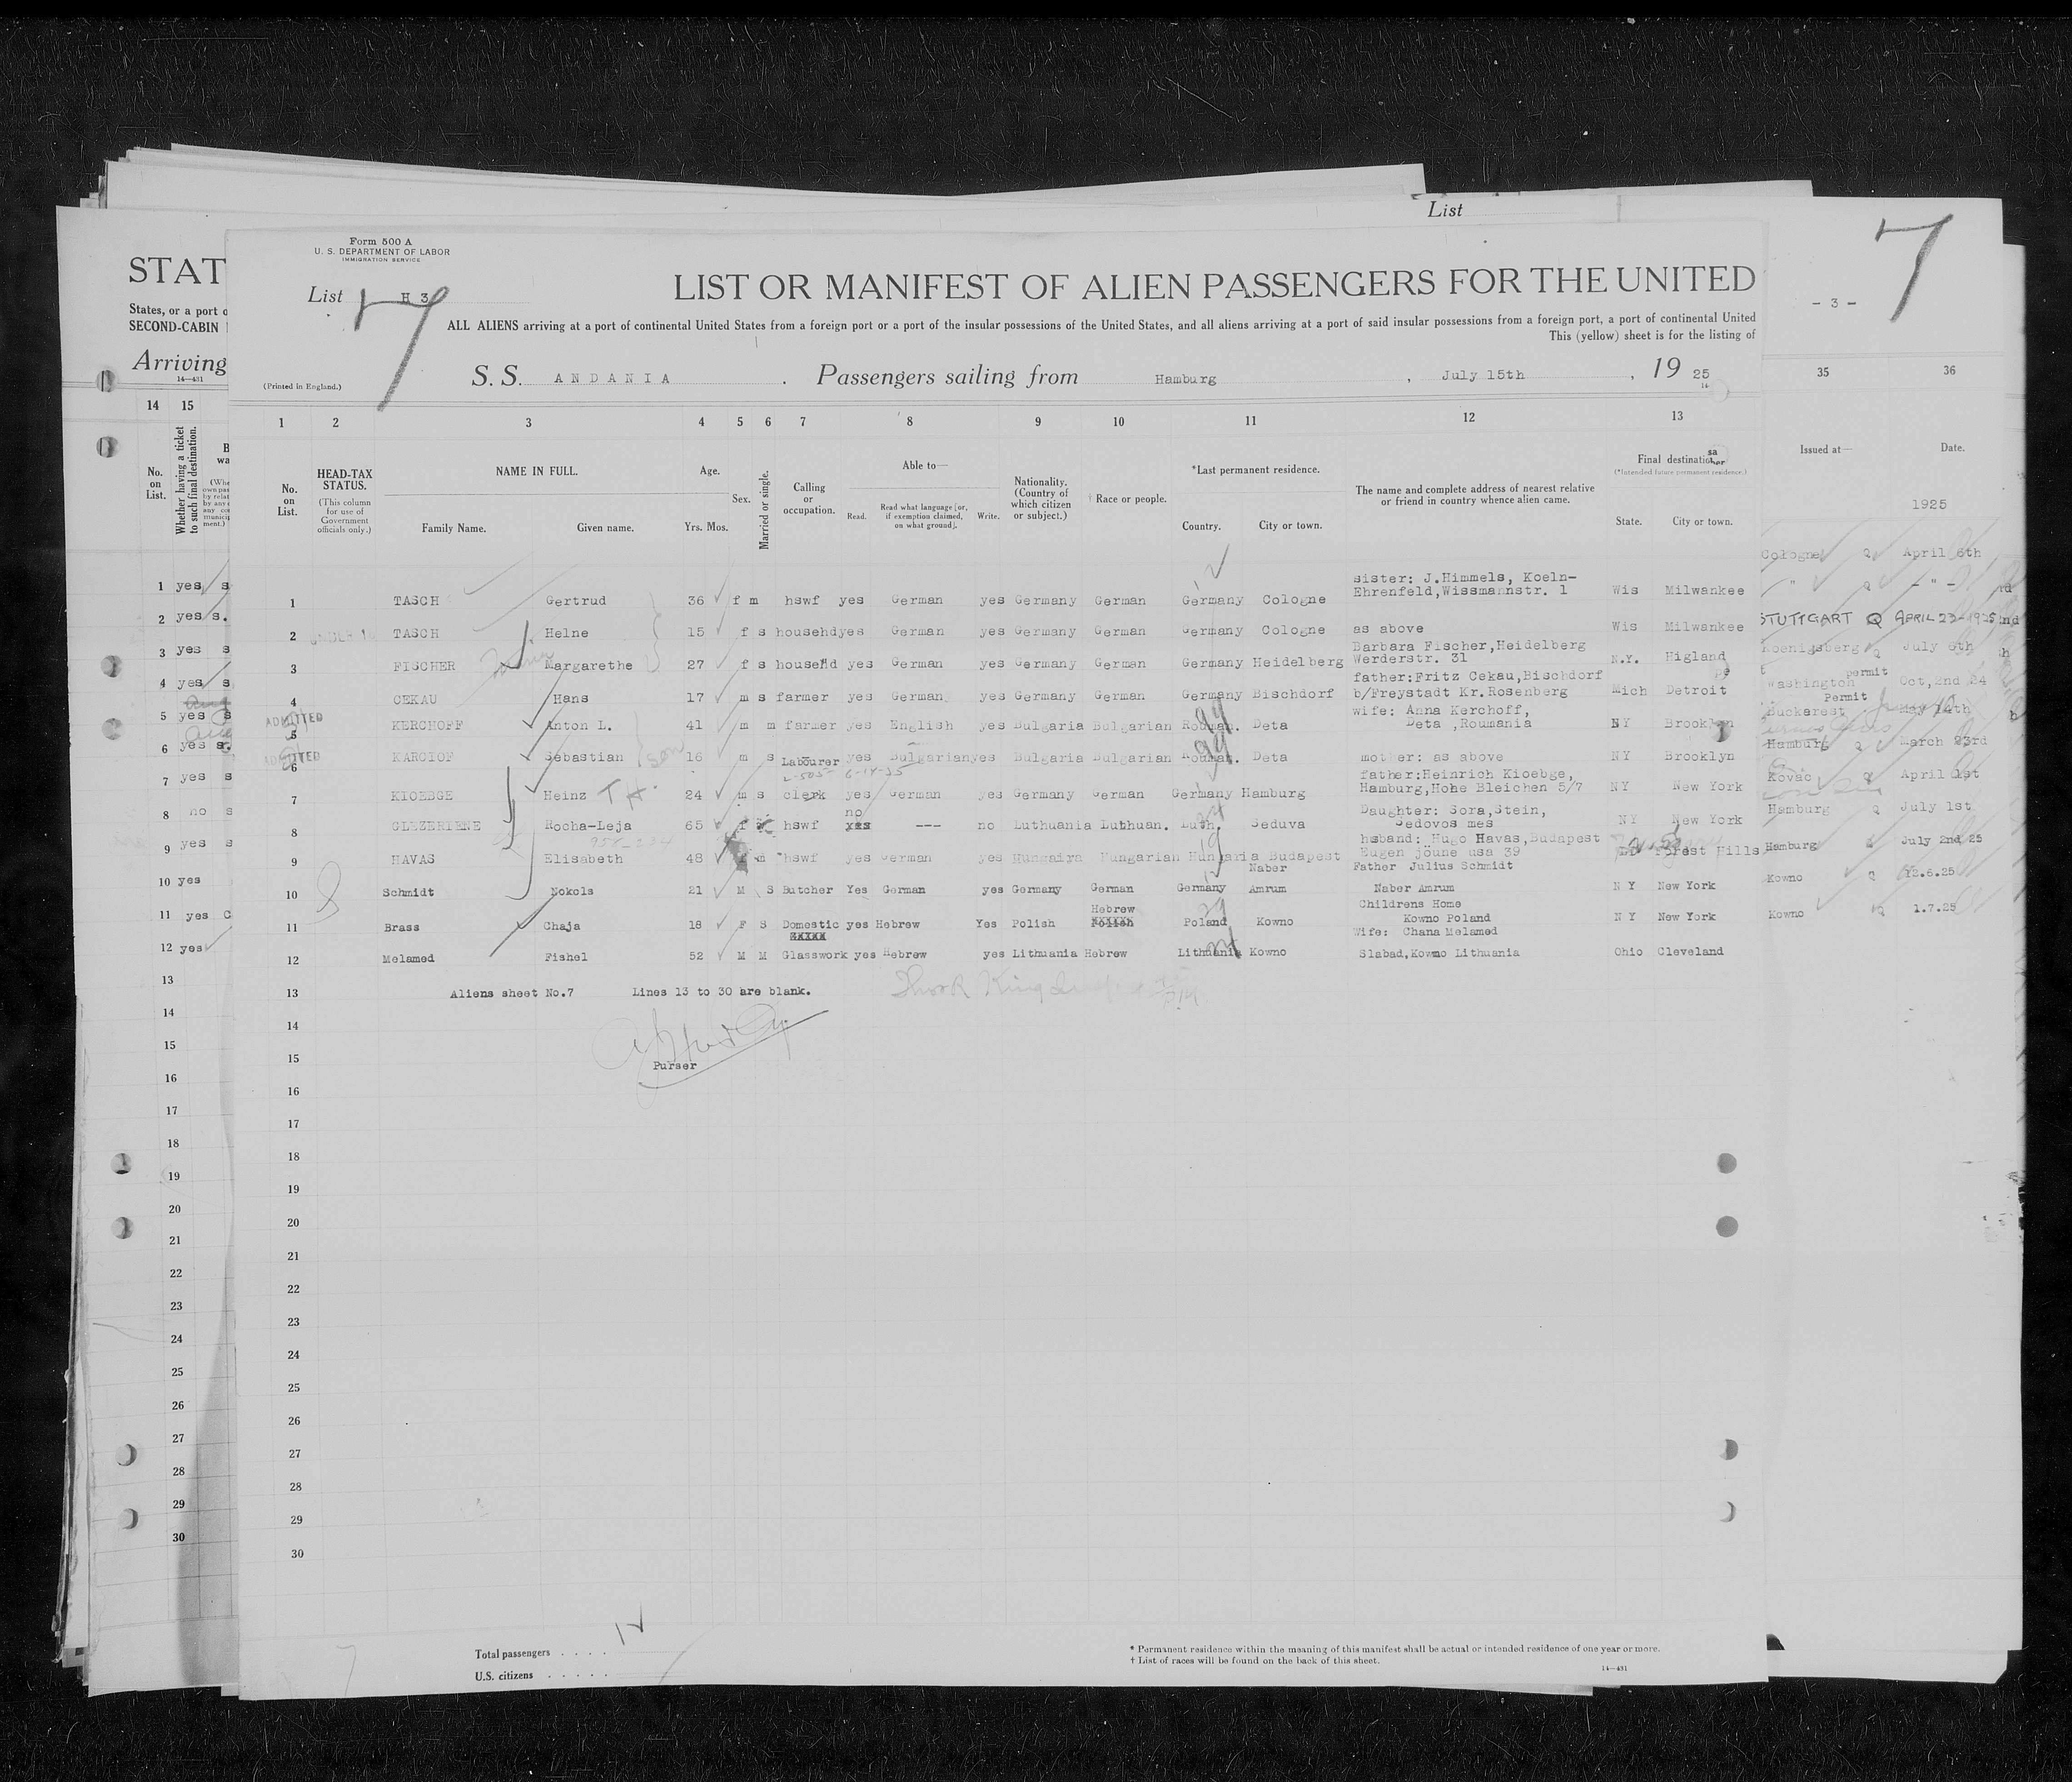 List
Form 500 A
U. S. DEPARTMENT OF LABOR
IMMIGRATION SERVICE
STAT
List H 3
7
LIST OR MANIFEST OF ALIEN PASSENGERS FOR THE UNITED
- 3 -
7
States, or a port o
SECOND-CABIN
ALL ALIENS arriving at a port of continental United States from a foreign port or a port of the insular possessions of the United States, and all aliens arriving at a port of said insular possessions from a foreign port, a port of continental United
This (yellow) sheet is for the listing of
Arriving
14—431
(Printed in England.)
S. S. ANDANIA . Passengers sailing from Hamburg , July 15th , 19 25
35 36
14 15
1 2 3 4 5 6 7 8 9 10 11 12 13
No. on List.
Whether having a ticket to such final destination.
No. on List.
HEAD-TAX STATUS.
(This column for use of Government officials only.)
NAME IN FULL.
Family Name. Given name.
Age.
Yrs. Mos.
Sex.
Married or single.
Calling or occupation.
Able to—
Read.
Read what language [or, if exemption claimed, on what ground].
Write.
Nationality. (Country of which citizen or subject.)
† Race or people.
*Last permanent residence.
Country. City or town.
The name and complete address of nearest relative or friend in country whence alien came.
Final destination
(*Intended future permanent residence.)
State. City or town.
Issued at— Date.
1925
1 yes s
1 TASCH Gertrud 36 f m hswf yes German yes Germany German Germany Cologne sister: J.Himmels, Koeln-
Ehrenfeld,Wissmannstr. 1 Wis Milwankee
Cologne Q April 6th
2 yes s.
2 TASCH Helne 15 f s househd yes German yes Germany German Germany Cologne as above Wis Milwankee
" Q - " -
3 yes s
3 FISCHER Margarethe 27 f s househd yes German yes Germany German Germany Heidelberg Barbara Fischer,Heidelberg
Werderstr. 31 N.Y. Higland
STUTTGART Q APRIL 23-1925
4 yes s
4 CEKAU Hans 17 m s farmer yes German yes Germany German Germany Bischdorf father:Fritz Cekau,Bischdorf
b/Freystadt Kr.Rosenberg Mich Detroit
Koenigsberg Q July 6th
5 yes s
ADMITTED
5 KERCHOFF Anton L. 41 m m farmer yes English yes Bulgaria Bulgarian Rouman. Deta wife: Anna Kerchoff,
Deta ,Roumania NY Brooklyn
permit
Washington Oct,2nd 24
6 yes s.
ADMITTED
6 KARCIOF Sebastian son 16 m s Labourer yes Bulgarian yes Bulgaria Bulgarian Rouman. Deta mother: as above NY Brooklyn
Permit
Buckarest May 14th
7 yes s
7 KIOEBGE Heinz 24 m s clerk yes German yes Germany German Germany Hamburg father:Heinrich Kioebge,
Hamburg,Hohe Bleichen 5/7 NY New York
Hamburg Q March 23rd
8 no s
8 GLEZERIENE Rocha-Leja 65 f hswf no yes --- no Luthuania Luthuan. Luth. Seduva Daughter: Sora,Stein,
Sedovos mes NY New York
Kovac Q April 1st
9 yes s
9 HAVAS Elisabeth 48 f m hswf yes German yes Hungaira Hungarian Hungaria Budapest hsband: Hugo Havas,Budapest
Eugen joune usa 39 Forest Hills
Hamburg Q July 1st
10 yes
10 Schmidt Nokols 21 M S Butcher Yes German yes Germany German Germany Naber Amrum Father Julius Schmidt
Naber Amrum N Y New York
Hamburg July 2nd 25
11 yes C
11 Brass Chaja 18 F S Domestic yes Hebrew Yes Polish Hebrew Polish Poland Kowno Childrens Home
Kowno Poland N Y New York
Kowno Q 12.6.25
12 yes
12 Melamed Fishel 52 M M Glasswork yes Hebrew yes Lithuania Hebrew Lithuania Kowno Wife: Chana Melamed
Slabad,Kowno Lithuania Ohio Cleveland
Kowno Q 1.7.25
13 13 Aliens sheet No.7 Lines 13 to 30 are blank.
14 14
15 15
Purser
16 16
17 17
18 18
19 19
20 20
21 21
22 22
23 23
24 24
25 25
26 26
27 27
28 28
29 29
30 30
Total passengers . . . . 12
U.S. citizens . . . . .
* Permanent residence within the meaning of this manifest shall be actual or intended residence of one year or more.
† List of races will be found on the back of this sheet.
14—431